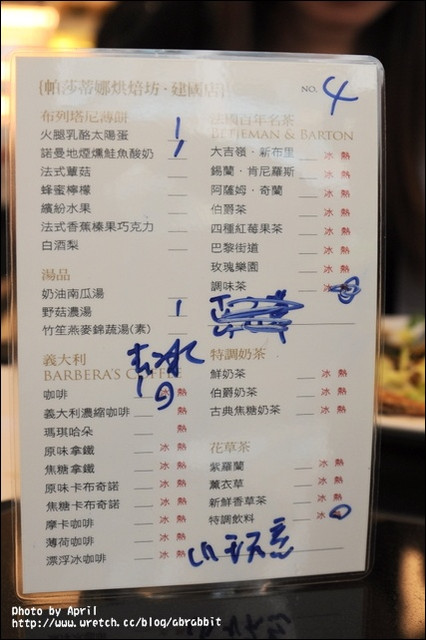 {帕莎蒂娜烘焙坊·建國店}
NO. 4
布列塔尼薄餅
火腿乳酪太陽蛋 1
諾曼地煙燻鮭魚酸奶 1
法式蕈菇
蜂蜜檸檬
繽紛水果
法式香蕉榛果巧克力
白酒梨
湯品
奶油南瓜湯
野菇濃湯 1
竹笙燕麥錦蔬湯(素)
義大利
BARBERA'S COFFEE
咖啡 熱
義大利濃縮咖啡 冰 熱
瑪琪哈朵 熱
原味拿鐵 冰 熱
焦糖拿鐵 冰 熱
原味卡布奇諾 冰 熱
焦糖卡布奇諾 冰 熱
摩卡咖啡 冰 熱
薄荷咖啡 冰 熱
漂浮冰咖啡 冰 熱
法國百年名茶
BETJEMAN & BARTON
大吉嶺·新布里 冰 熱
錫蘭·肯尼羅斯 冰 熱
阿薩姆·奇蘭 冰 熱
伯爵茶 冰 熱
四種紅莓果茶 冰 熱
巴黎街道 冰 熱
玫瑰樂園 冰 熱
調味茶 冰
特調奶茶
鮮奶茶 冰 熱
伯爵奶茶 冰 熱
古典焦糖奶茶 冰 熱
花草茶
紫羅蘭 冰 熱
薰衣草 冰 熱
新鮮香草茶 冰 熱
特調飲料 冰 熱
Photo by April
http://www.wretch.cc/blog/abrabbit